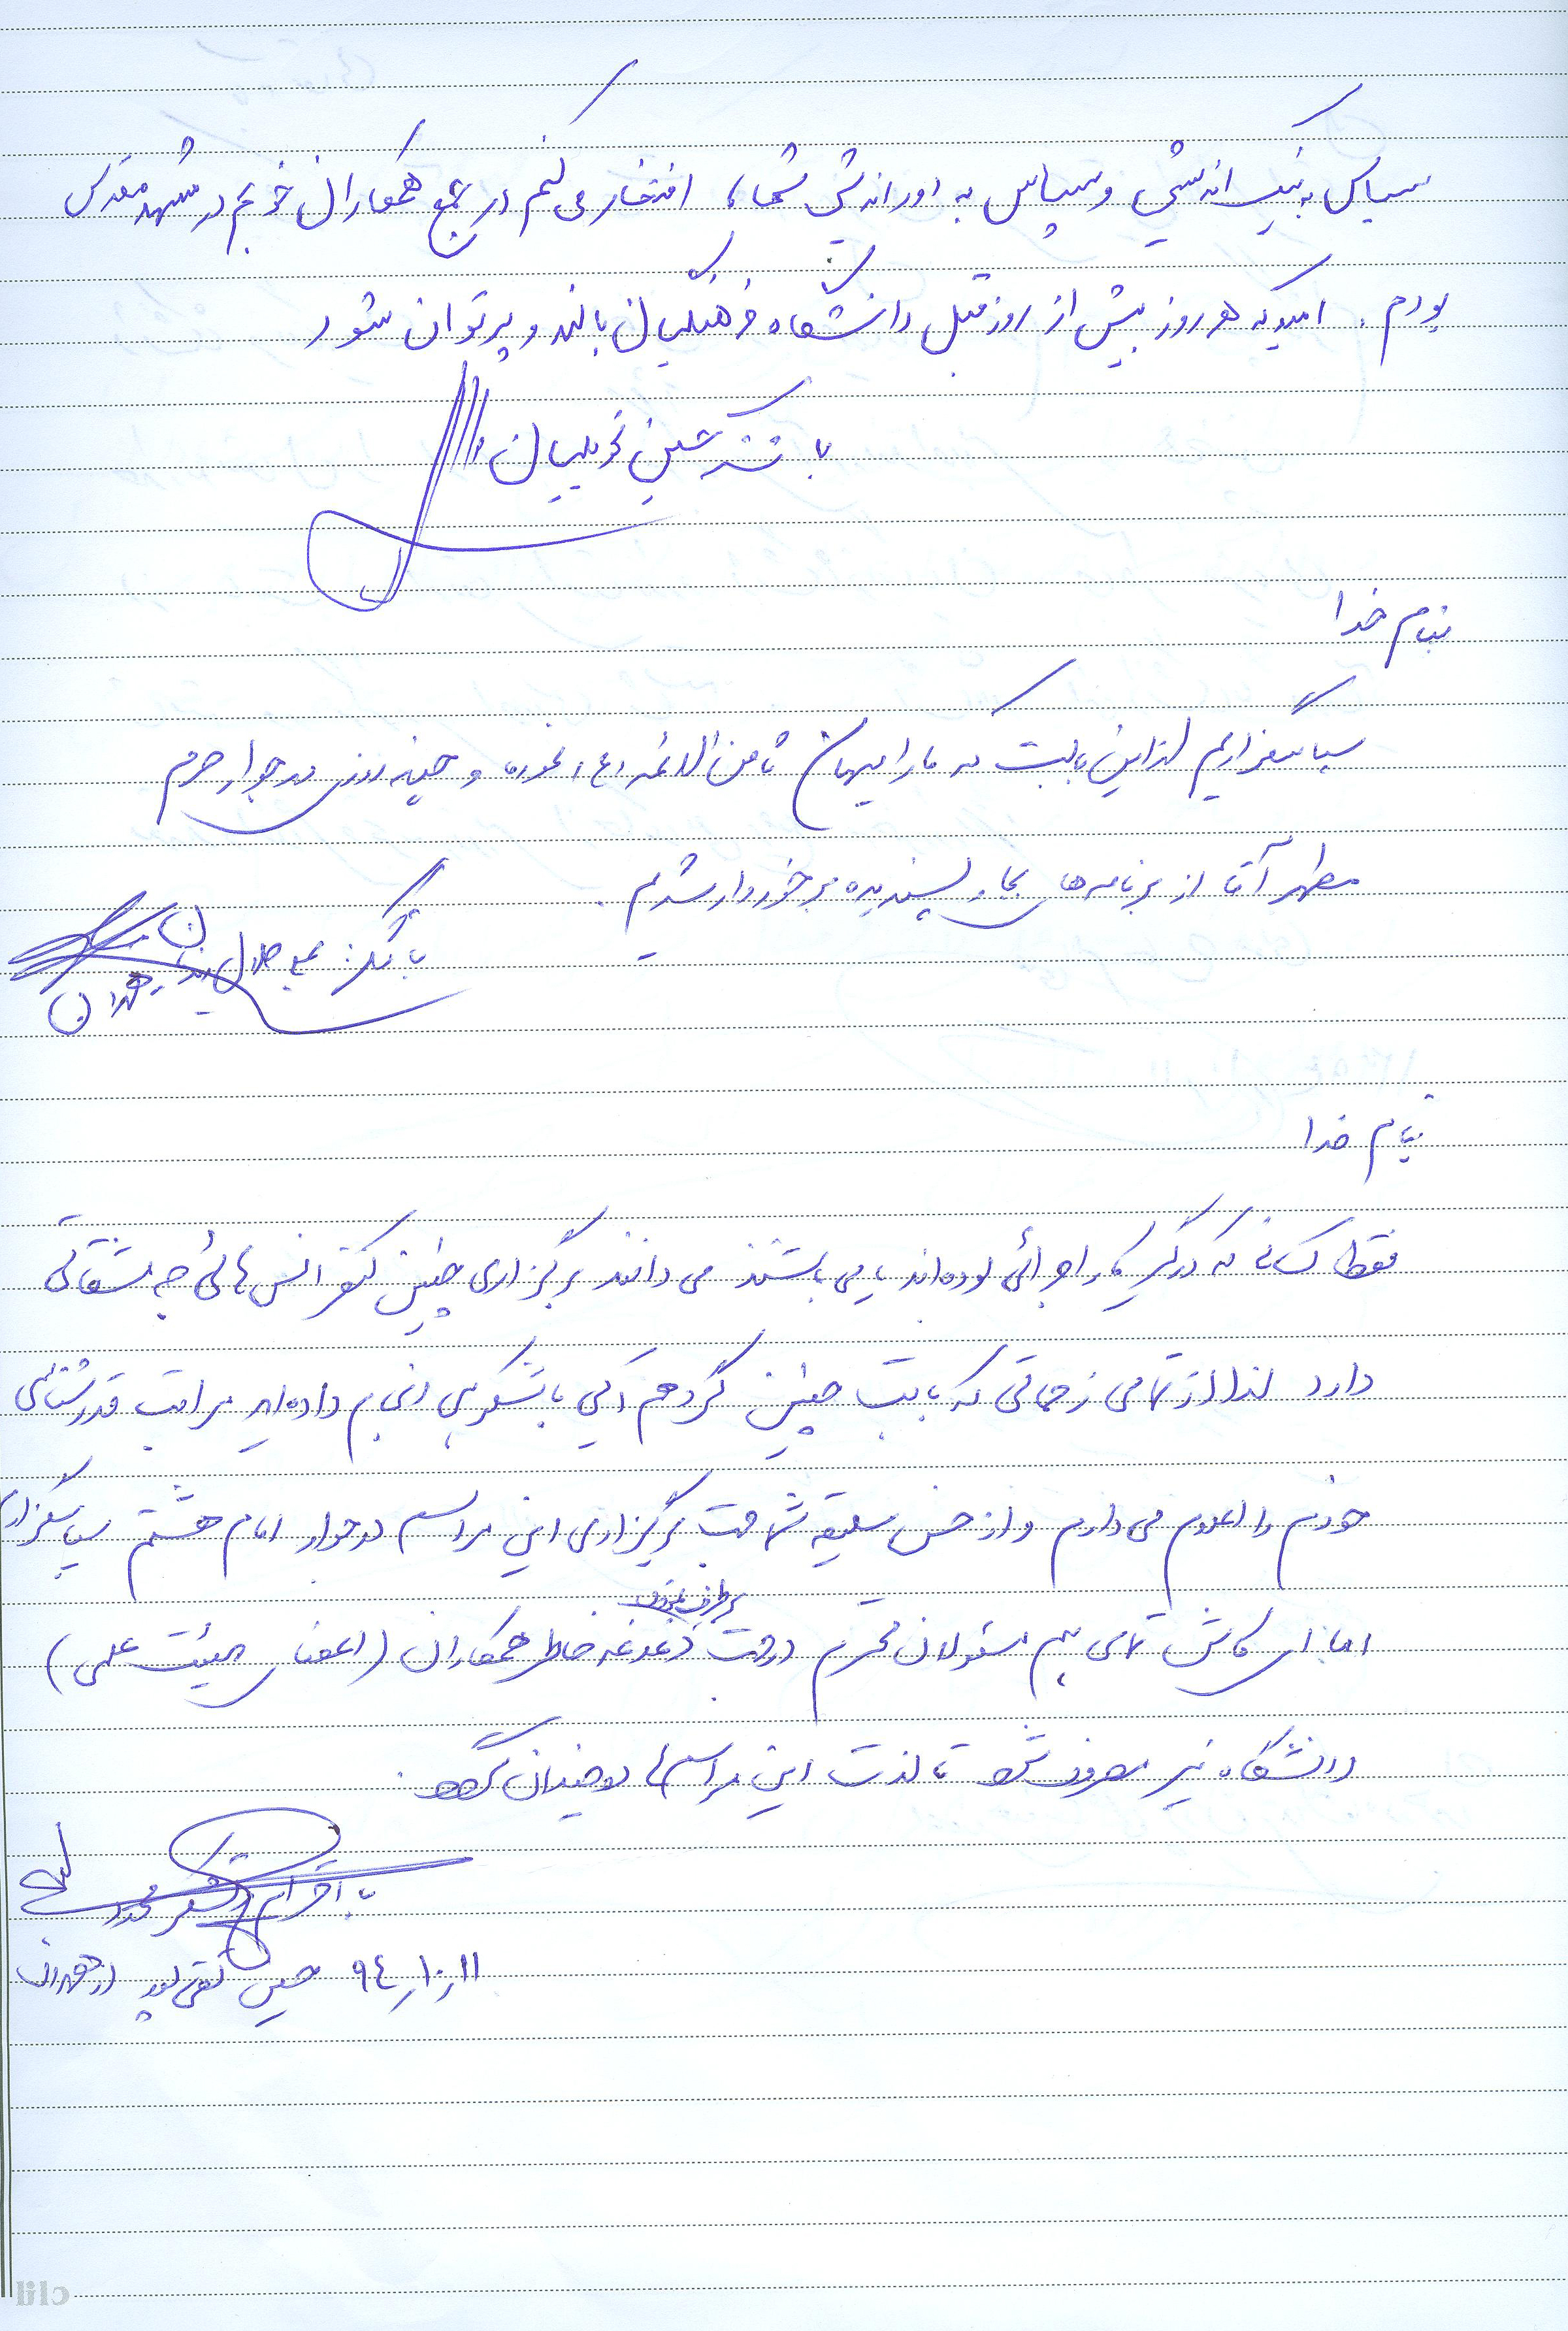 سپاس به نیک اندیشی و سپاس به دور اندیشی شما، افتخار می کنم در جمع همکاران خوبم در مشهد مقدس
بودم. امید که هر روز بیش از روز قبل دانشگاه فرهنگیان بالنده و پرتوان شود
با تشکر
بنام خدا
سپاسگزاریم از این بابت که ما را میهمان ثامن الائمه (ع) نموده و چند روزی در جوار حرم
مطهر آقا از برنامه های بجا و پسندیده برخوردار شدیم.
با تشکر: همدان
بنام خدا
فقط کسانی که درگیر کار اجرائی بوده اند یا می باشند می دانند برگزاری چنین کنفرانس هائی چه مشقاتی
دارد لذا از تمامی زحماتی که بابت چنین گردهم آئی باشکوهی انجام داده اید مراتب قدرشناسی
خودم را اعلام می دارم و از حسن سلیقه شما جهت برگزاری این مراسم در جوار امام هشتم سپاسگزارم
برطرف نمودن
اما ای کاش تمامی هم مسئولان محترم در جهت دغدغه خاطر همکاران (اعضای هیئت علمی)
دانشگاه نیز مصروف شود تا لذت این مراسم ها دوچندان گردد.
با احترام و تشکر مجدد
۹٤،۱۰،۱۱ حسین تقی پور از همدان